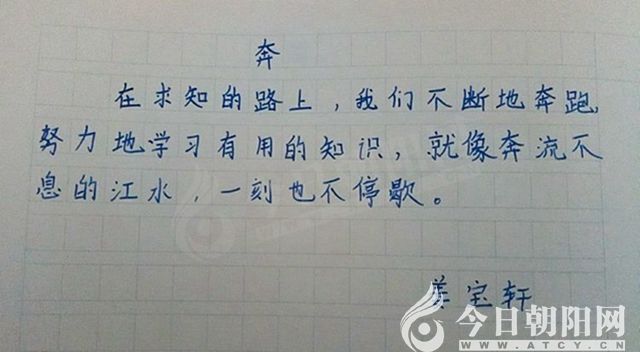 奔
在求知的路上，我们不断地奔跑，
努力地学习有用的知识，就像奔流不
息的江水，一刻也不停歇。
姜宝轩
今日朝阳网
WWW.ATCY.CN